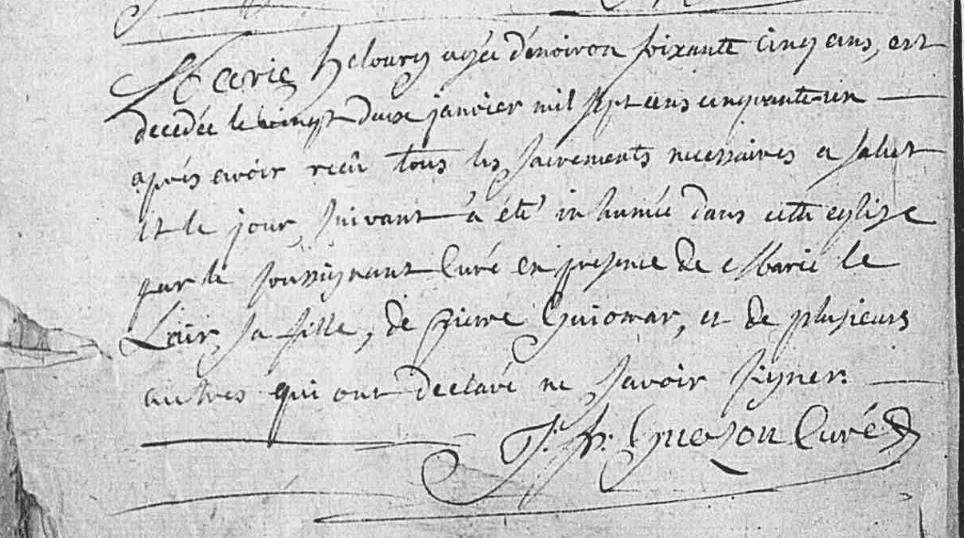 Marie heloury agée d'environ soixante cinq ans, est
decedée le vingt deux janvier mil sept cens cinquante un
après avoir reçû tous les sacrements necessaires a salut
et le jour suivant a été inhumée dans cette eglise
par le soussignant Curé en presence de Marie le
Lair sa fille, de Pierre Guiomar, et de plusieurs
autres qui ont declaré ne savoir signer.
Curé